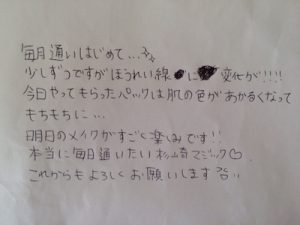 毎月通いはじめて...
少しずつですがほうれい線に変化が!!!!
今日やってもらったパックは肌の色があかるくなって
もちもちに...
明日のメイクがすごく楽しみです!!
本当に毎月通いたい杉山奇マジック♡.
これからもよろしくお願いします